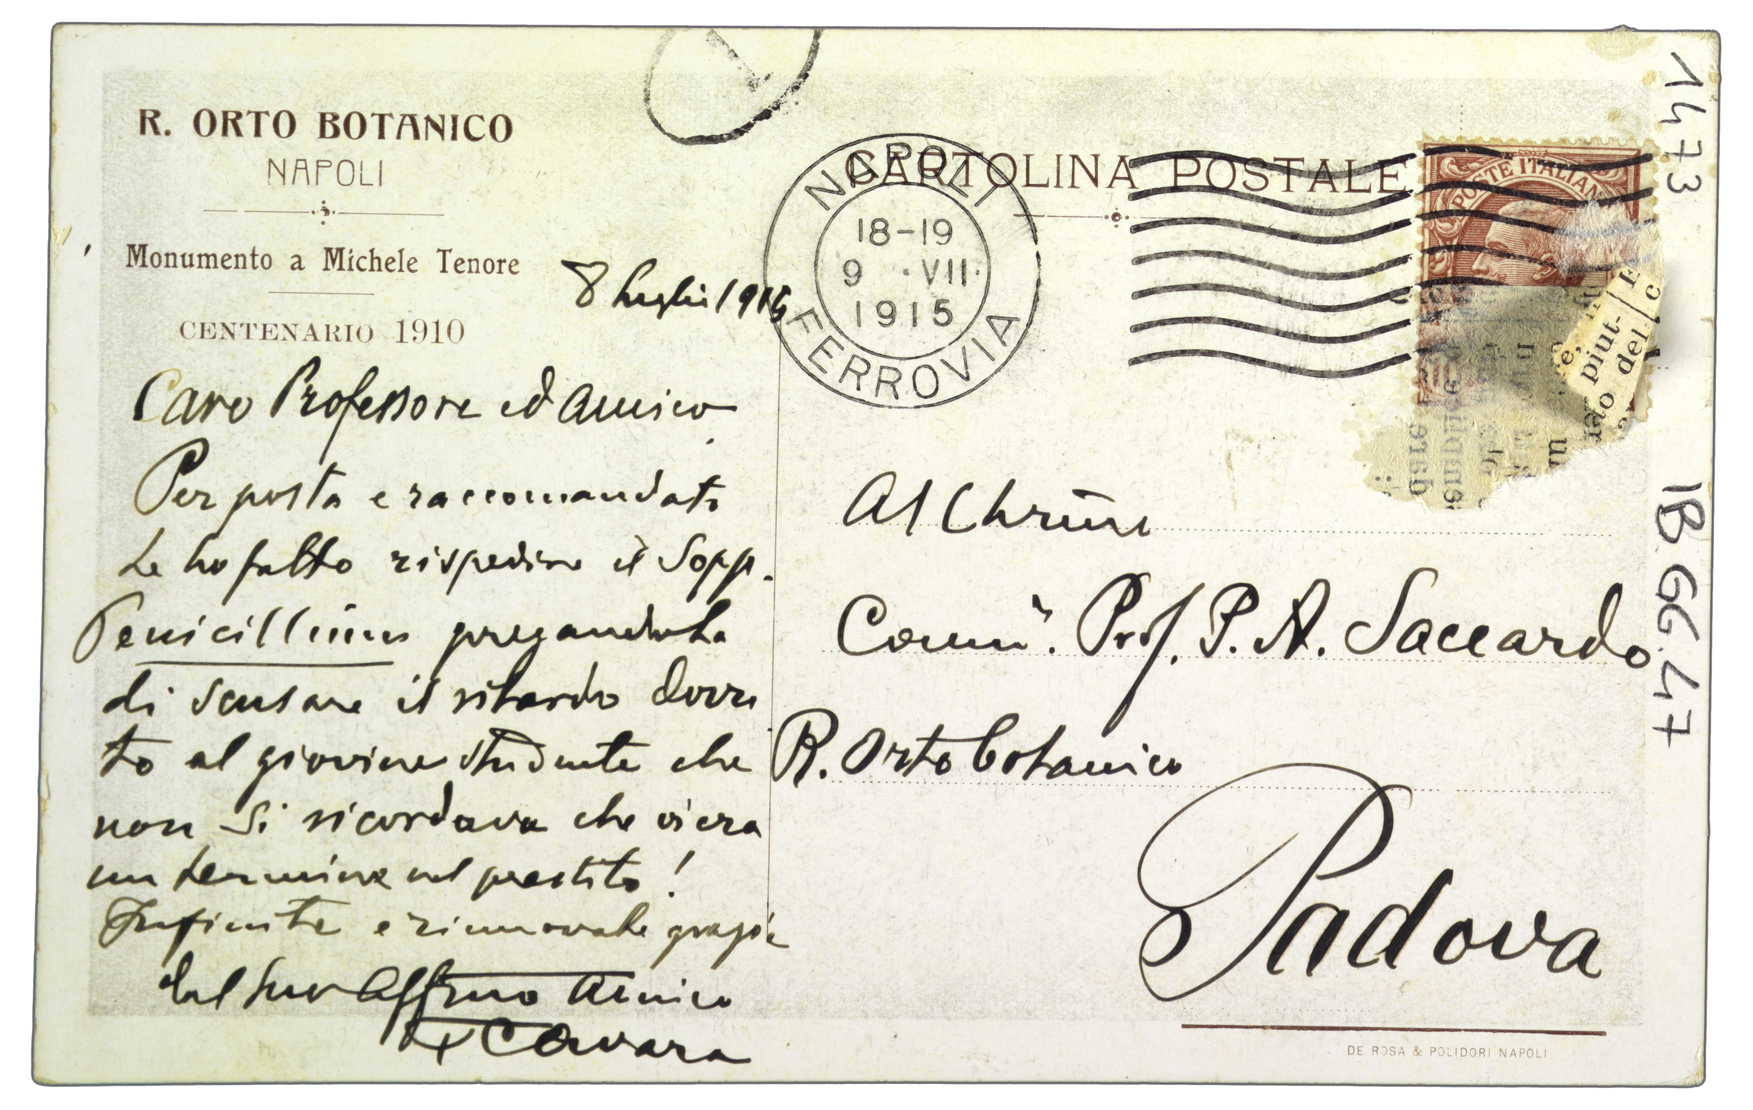 R. ORTO BOTANICO
NAPOLI
Monumento a Michele Tenore
CENTENARIO 1910
8 luglio 1915
Caro Professore ed Amico
Per posta e raccomandato
Le ho fatto rispedire il Sopp.
Penicillium pregandola
di scusare il ritardo dovu
to al giovine studente che
non si ricordava che vi era
un termine nel prestito!
Infinite e rinnovate grazie
dal Suo Affmo Amico
F Cavara
CARTOLINA POSTALE
NAPOLI
18-19
9 · VII ·
1915
FERROVIA
POSTE ITALIANE
piut-
del
Al Chrmo
Comm. Prof. P. A. Saccardo
R. Orto botanico
Padova
DE ROSA & POLIDORI NAPOLI
1473
IB.GG.47